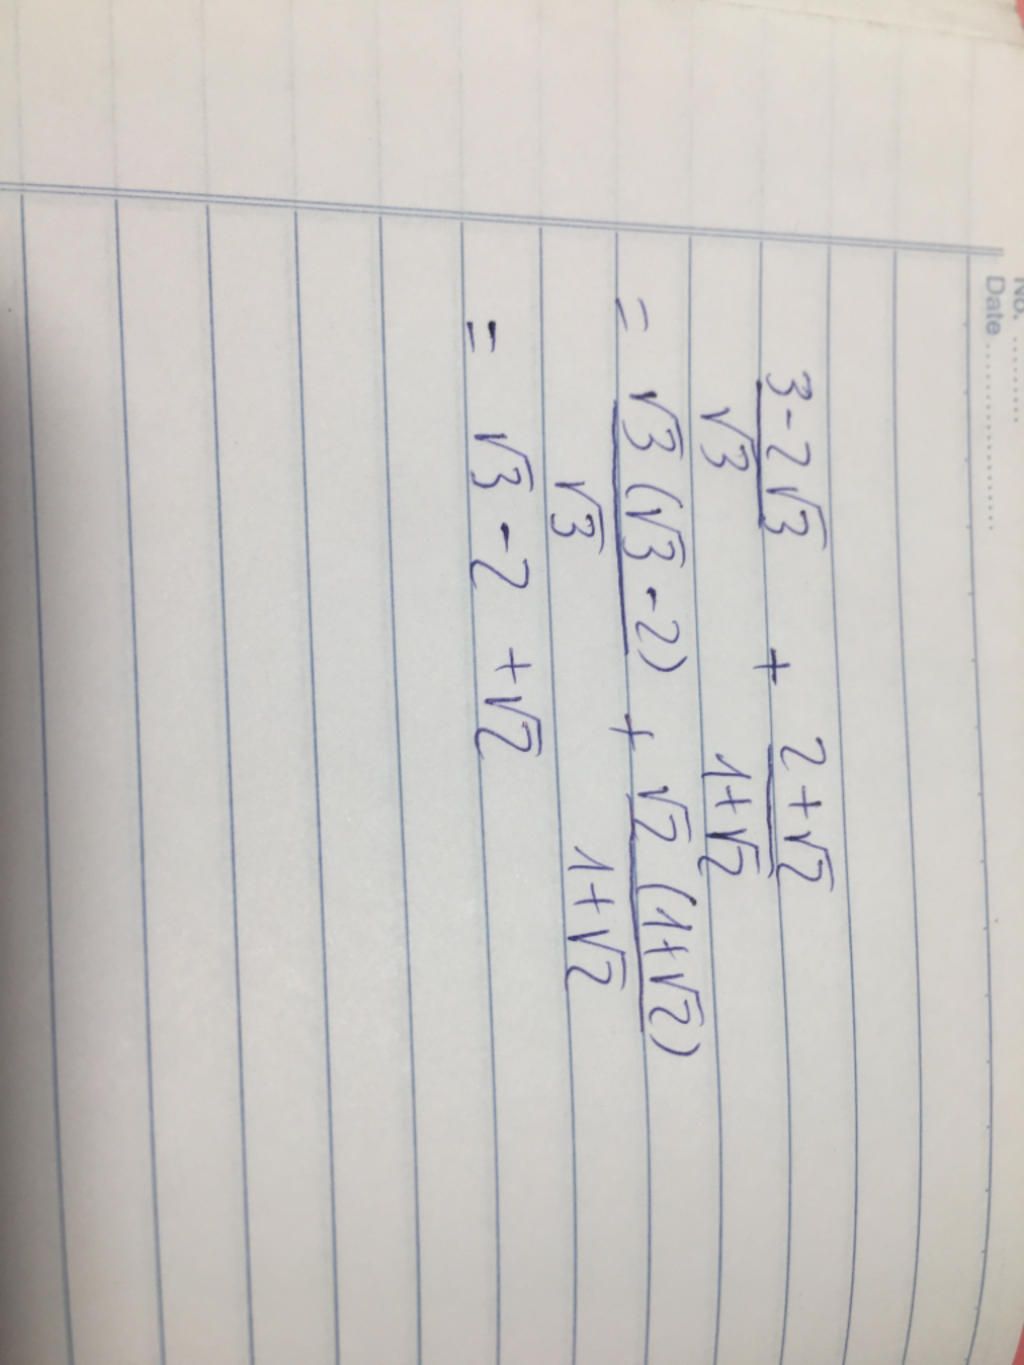 No. ..........
Date ....................
(3-2√3)/√3 + (2+√2)/(1+√2)
= √3(√3-2)/√3 + √2(1+√2)/(1+√2)
= √3 - 2 + √2